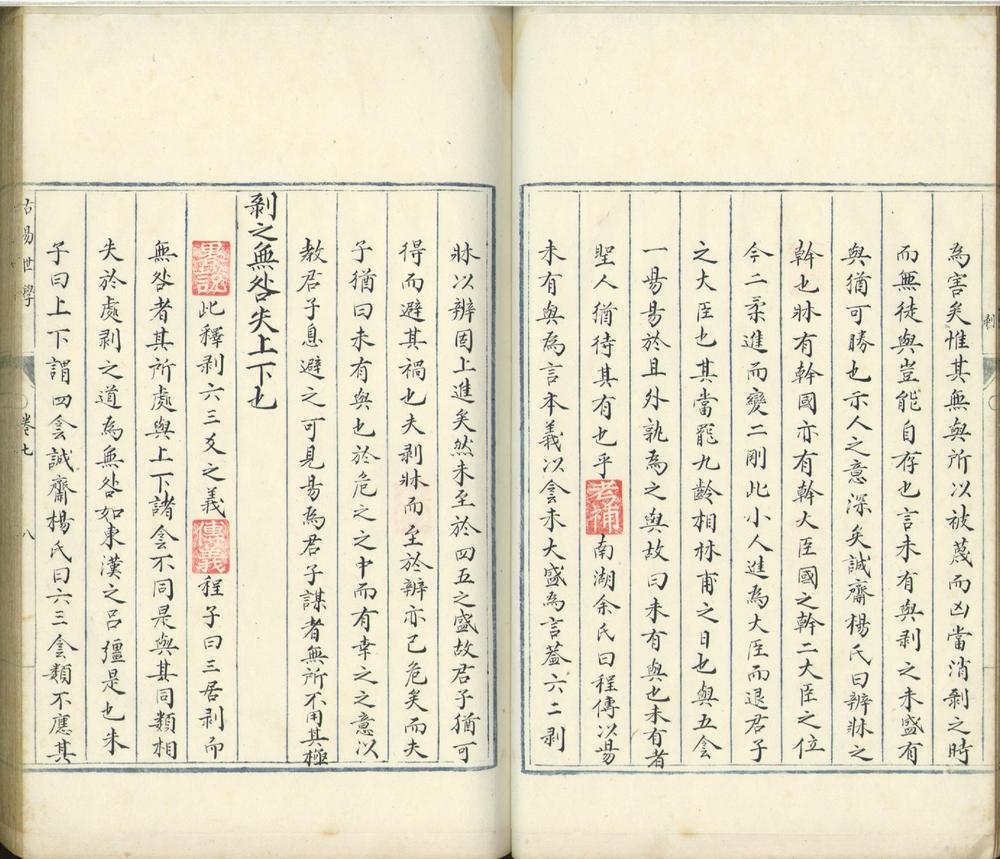 剝
為害矣惟其無與所以被蔑而凶當消剝之時
而無徒與豈能自存也言未有與剝之未盛有
與猶可勝也示人之意深矣誠齋楊氏曰辨牀之
幹也牀有幹國亦有幹大臣國之幹二大臣之位
今二柔進而變二剛此小人進為大臣而退君子
之大臣也其當罷九齡相林甫之日也與五侌
一昜昜於且外孰為之與故曰未有與也未有者
聖人猶待其有也乎考補南湖余氏曰程傳以昜
未有與為言本義以侌未大盛為言葢六二剥
牀以辨固上進矣然未至於四五之盛故君子猶可
得而避其禍也夫剥牀而至於辨亦已危矣而夫
子猶曰未有與也於危之之中而有幸之之意以
教君子息避之可見昜為君子謀者無所不用其極
剥之無咎失上下也
畧說此釋剥六三爻之義傳義程子曰三居剥而
無咎者其所處與上下諸侌不同是與其同類相
失於處剥之道為無咎如東漢之呂彊是也朱
子曰上下謂四侌誠齋楊氏曰六三侌類不應其
古易世學
卷七
八